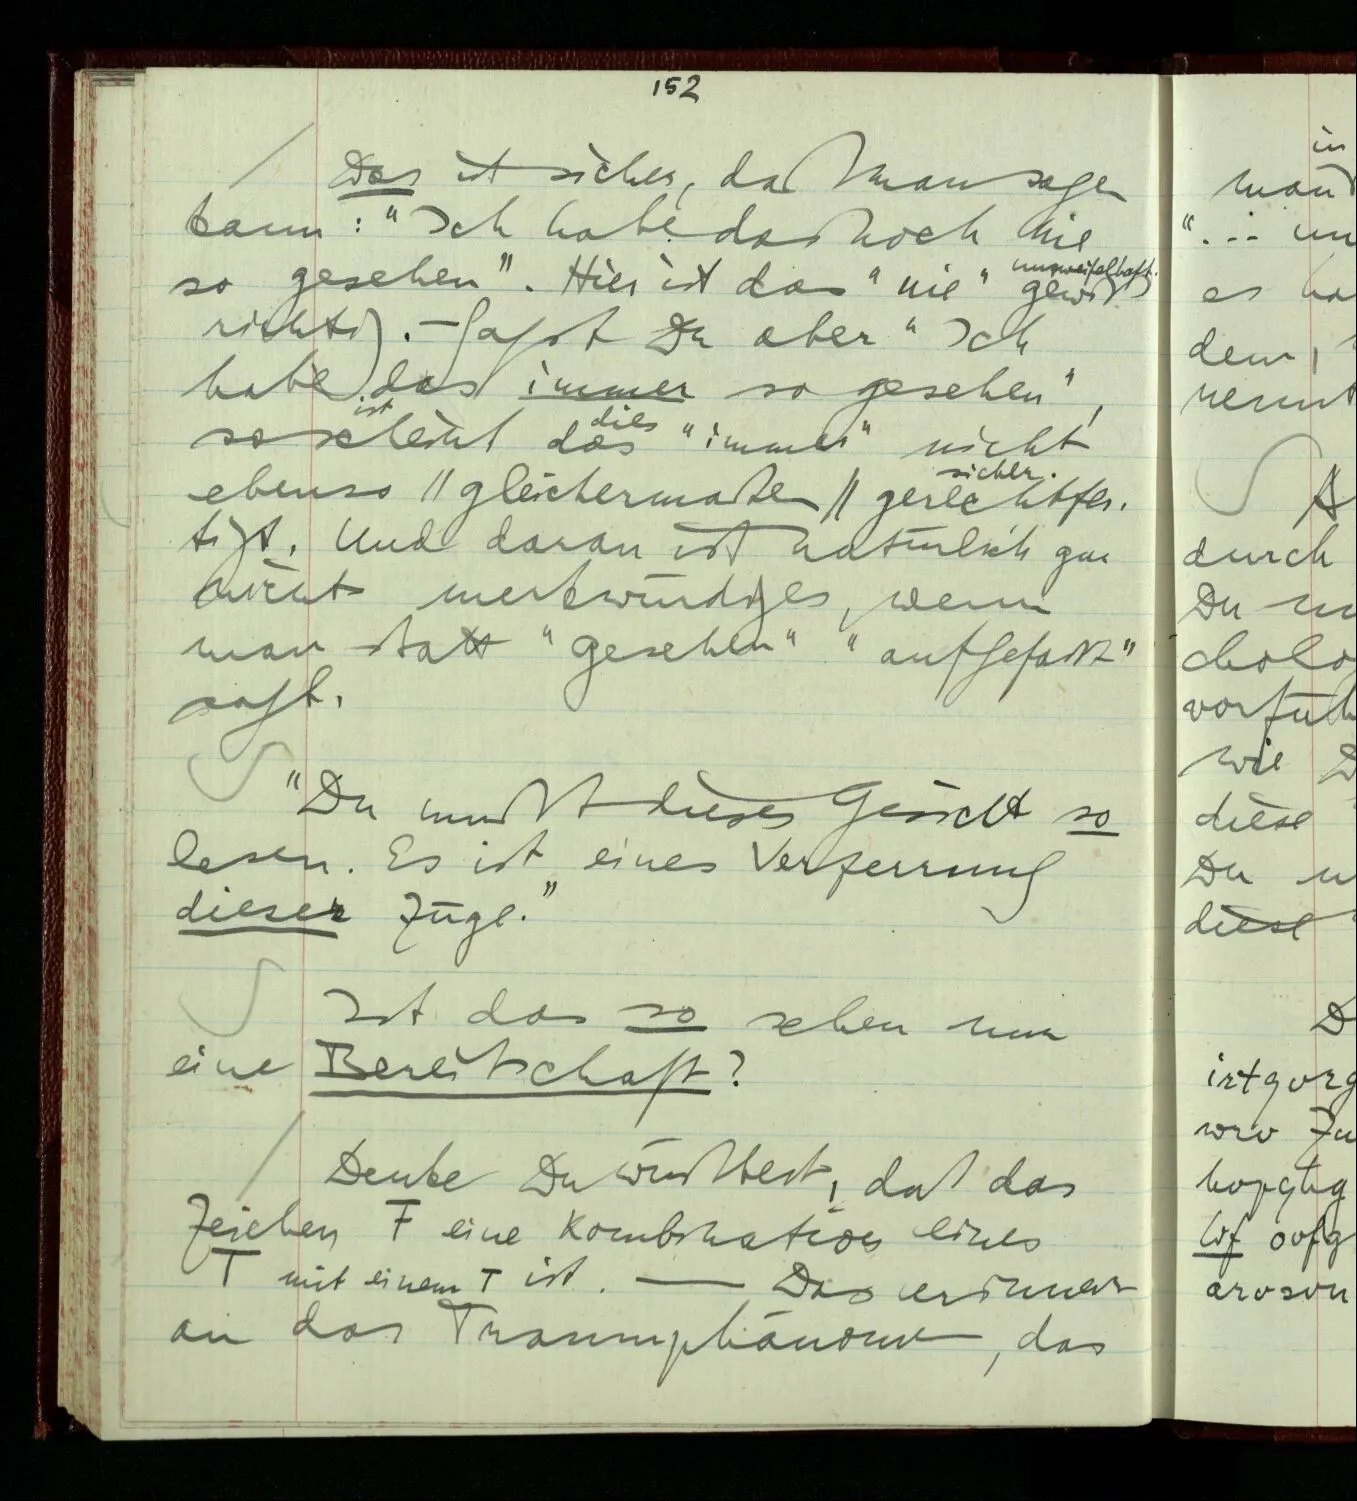 152
Das ist sicher, daß man sagen
kann: "Ich habe das noch nie
so gesehen". Hier ist das "nie" gewiß unzweifelhaft
richtig. – Sagst Du aber "Ich
habe das immer so gesehen",
so scheint ist das dies "immer" nicht
ebenso // gleichermaßen // gerechtfer- sicher.
tigt. Und daran ist natürlich gar
nichts merkwürdiges, wenn
man statt "gesehen" "aufgefaßt"
sagt.
"Du mußt dieses Gesicht so
lesen. Es ist eines Verzerrung
dieser Züge."
Ist das so sehen nun
eine Bereitschaft?
Denke Du wüßtest, daß das
Zeichen F eine Kombination eines
T mit einem T ist. — Das erinnert
an das Traumphänomen, das
in
"...
es
dem,
A
durch
Du
wie
diese
Du
diese
irtqvrg
wrv